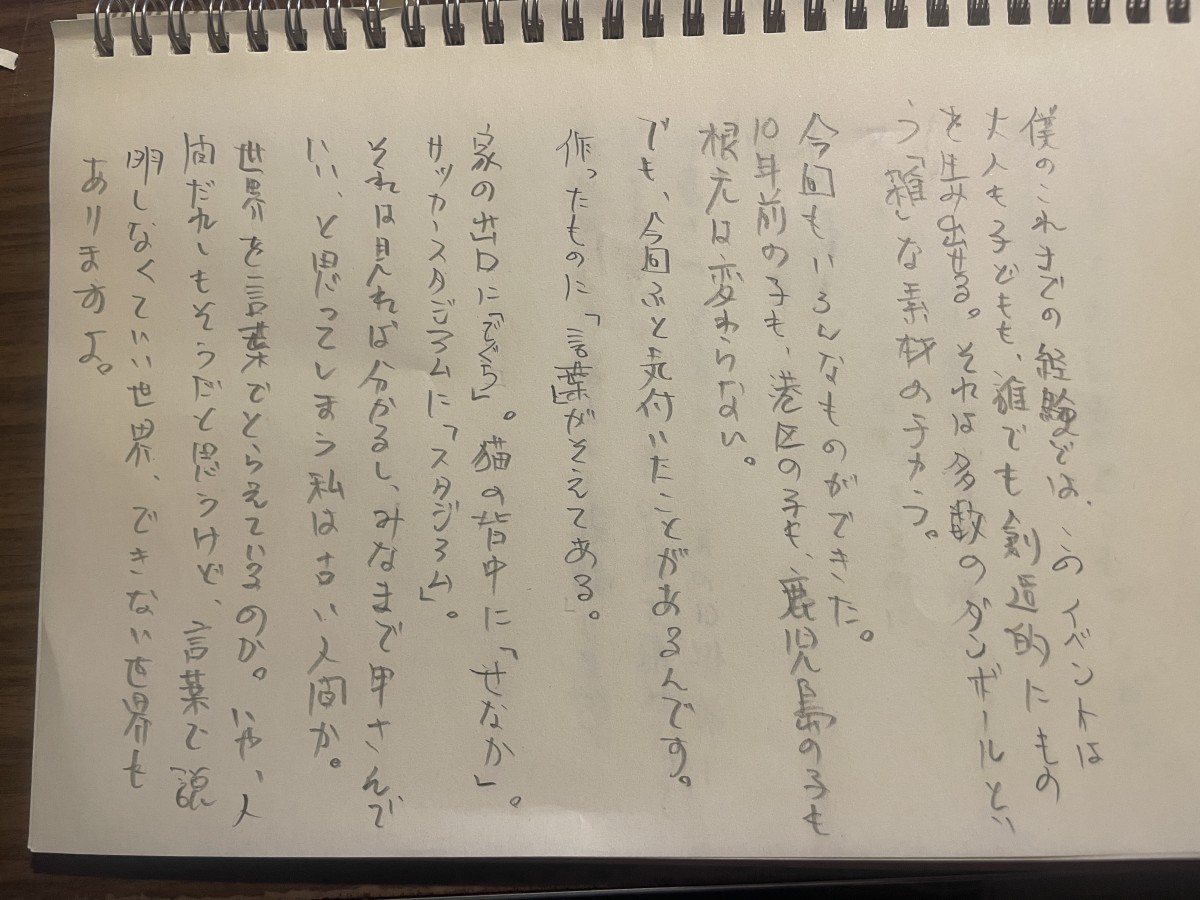 僕のこれまでの経験では、このイベントは
大人も子どもも、誰でも創造的にもの
を生み出せる。それは多数のダンボールとい
う「雑」な素材のチカラ。
今回もいろんなものができた。
10年前の子も、港区の子も、鹿児島の子も
根元は変わらない。
でも、今回ふと気付いたことがあるんです。
作ったものに「言葉」がそえてある。
家の出口に「でぐち」。猫の背中に「せなか」。
サッカースタジアムに「スタジアム」。
それは見れば分かるし、みなまで申さんで
いい、と思ってしまう私は古い人間か。
世界を言葉でとらえているのか。いや、人
間だれしもそうだと思うけど、言葉で説
明しなくていい世界、できない世界も
ありますよ。